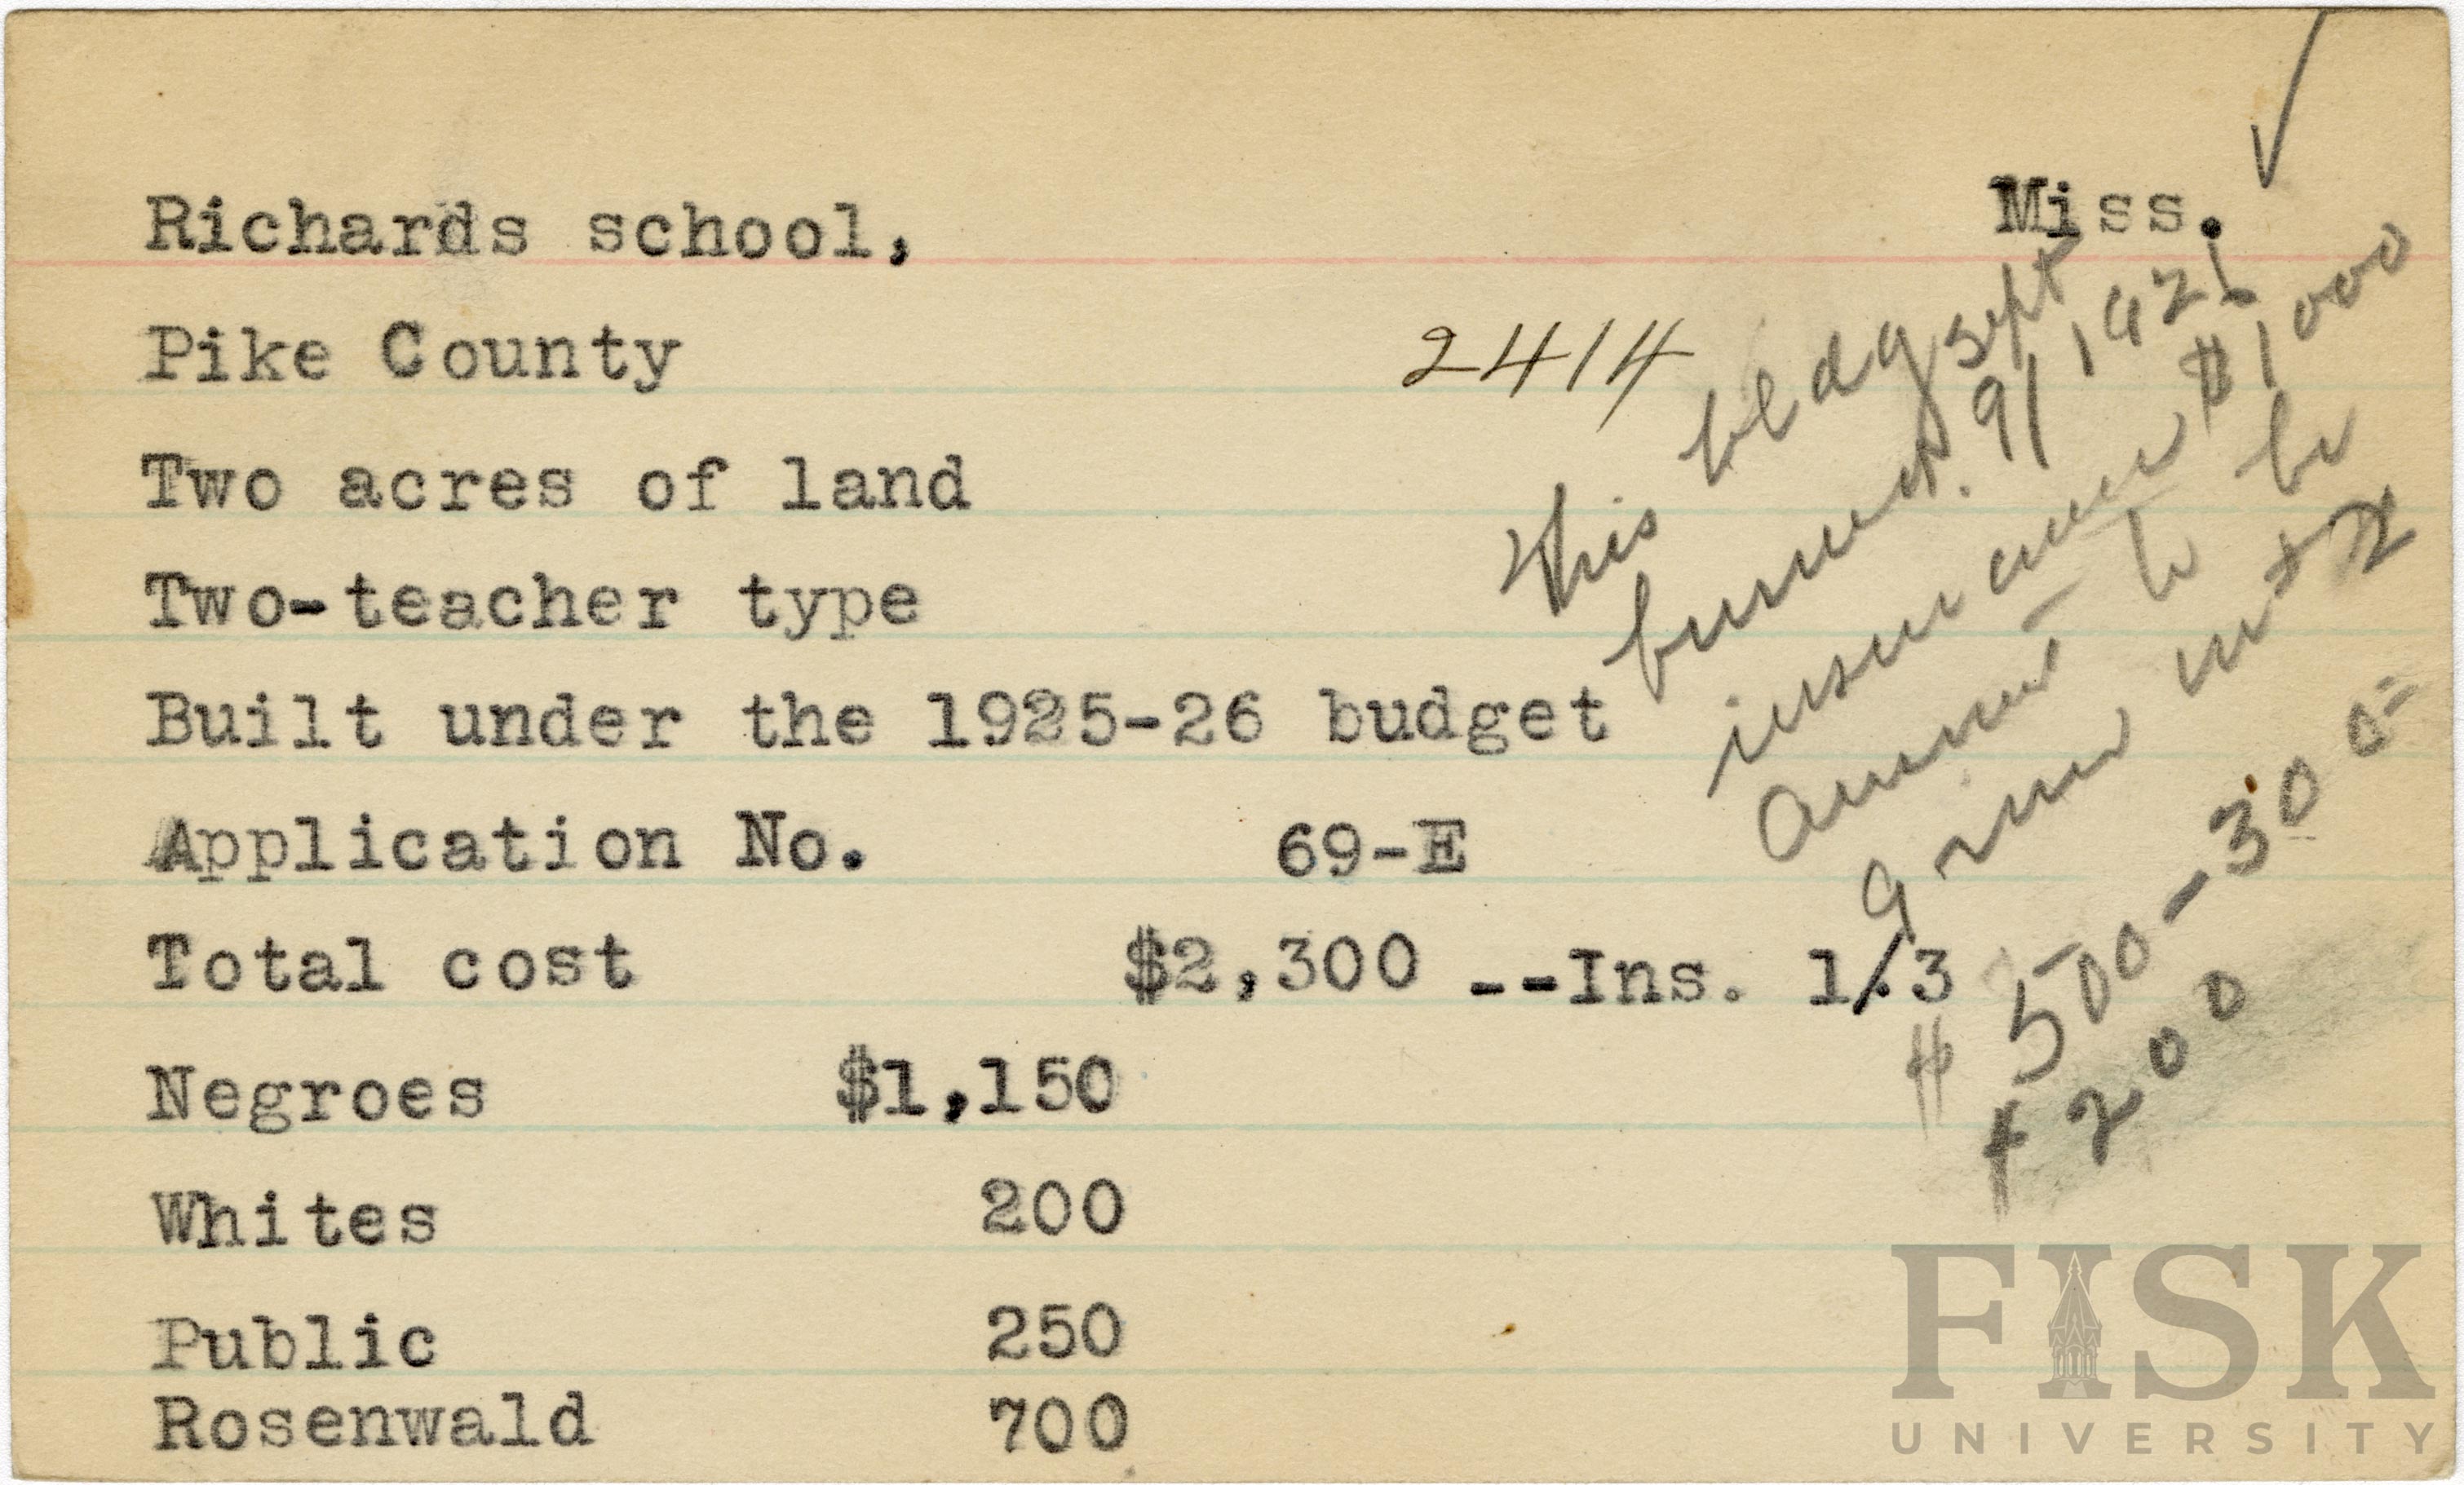 Richards school, Miss.
Pike County 2414
Two acres of land
Two-teacher type
Built under the 1925-26 budget
Application No. 69-E
Total cost $2,300 --Ins. 1/3
Negroes $1,150
Whites 200
Public 250
Rosenwald 700
This bldg sept
burned. 9/ 1926
insurance $1000
to be
$500-300=
$200
FISK
UNIVERSITY